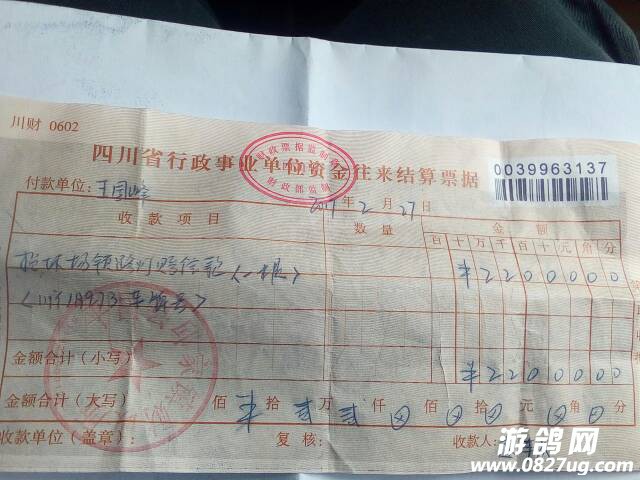 川财 0602
四川省行政事业单位资金往来结算票据
财政票据监制章
财政部监制
0039963137
付款单位：王国峰
年2月27日
收款项目 数量 金额
百十万千百十元角分
损坏杨镇路灯赔偿款〈一根〉
¥2200000
金额合计（小写） ¥2200000
金额合计（大写） 佰 ¥ 拾 贰 万 贰 仟 佰 拾 元 角 分
收款单位（盖章）： 复核： 收款人：
游鸽网
www.0827ug.com